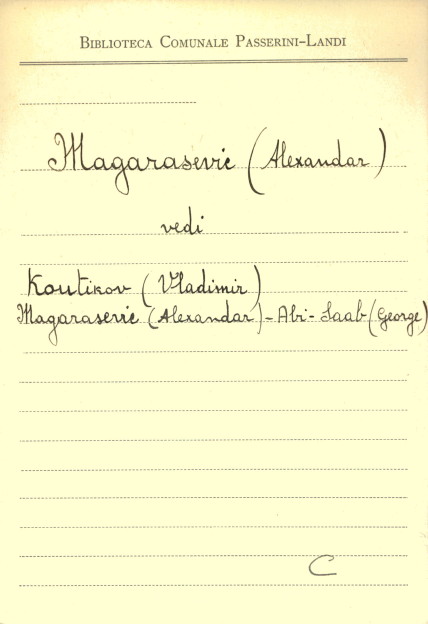 BIBLIOTECA COMUNALE PASSERINI-LANDI
Magarasevic (Alexandar)
vedi
Koutikov (Vladimir)
Magarasevic (Alexandar) - Abi-Saab (George)
C